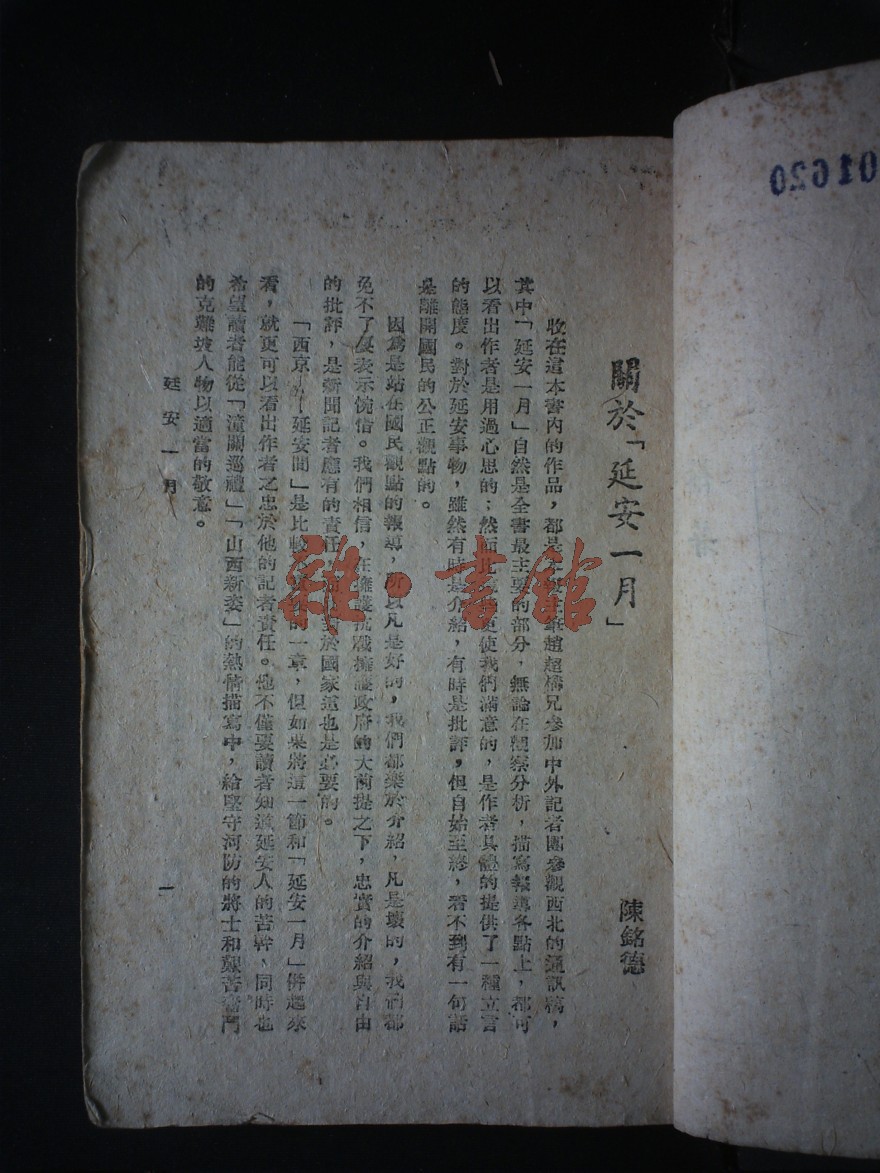 關於「延安一月」
陳銘德
收在這本書內的作品，都是本報主筆趙超構兄參加中外記者團參觀西北的通訊稿，
其中「延安一月」自然是全書最主要的部分，無論在觀察分析，描寫報導各點上，都可
以看出作者是用過心思的；然而比這個更使我們滿意的，是作者具體的提供了一種立言
的態度。對於延安事物，雖然有時是介紹，有時是批評，但自始至終，看不到有一句話
是離開國民的公正觀點的。
因爲是站在國民觀點的報導，所以凡是好的，我們都樂於介紹，凡是壞的，我們都
免不了要表示惋惜。我們相信，在擁護抗戰擁護政府的大前提之下，忠實的介紹與自由
的批評，是新聞記者應有的責任，對於國家這也是必要的。
「西京——延安間」是比較的一章，但如果將這一節和「延安一月」併起來
看，就更可以看出作者之忠於他的記者責任。他不僅要讀者知道延安人的苦幹、同時也
希望讀者能從「潼關巡禮」「山西新姿」的熱情描寫中，給堅守河防的將士和艱苦奮鬥
的克難坡人物以適當的敬意。
延安一月
一
01620
雜·書館